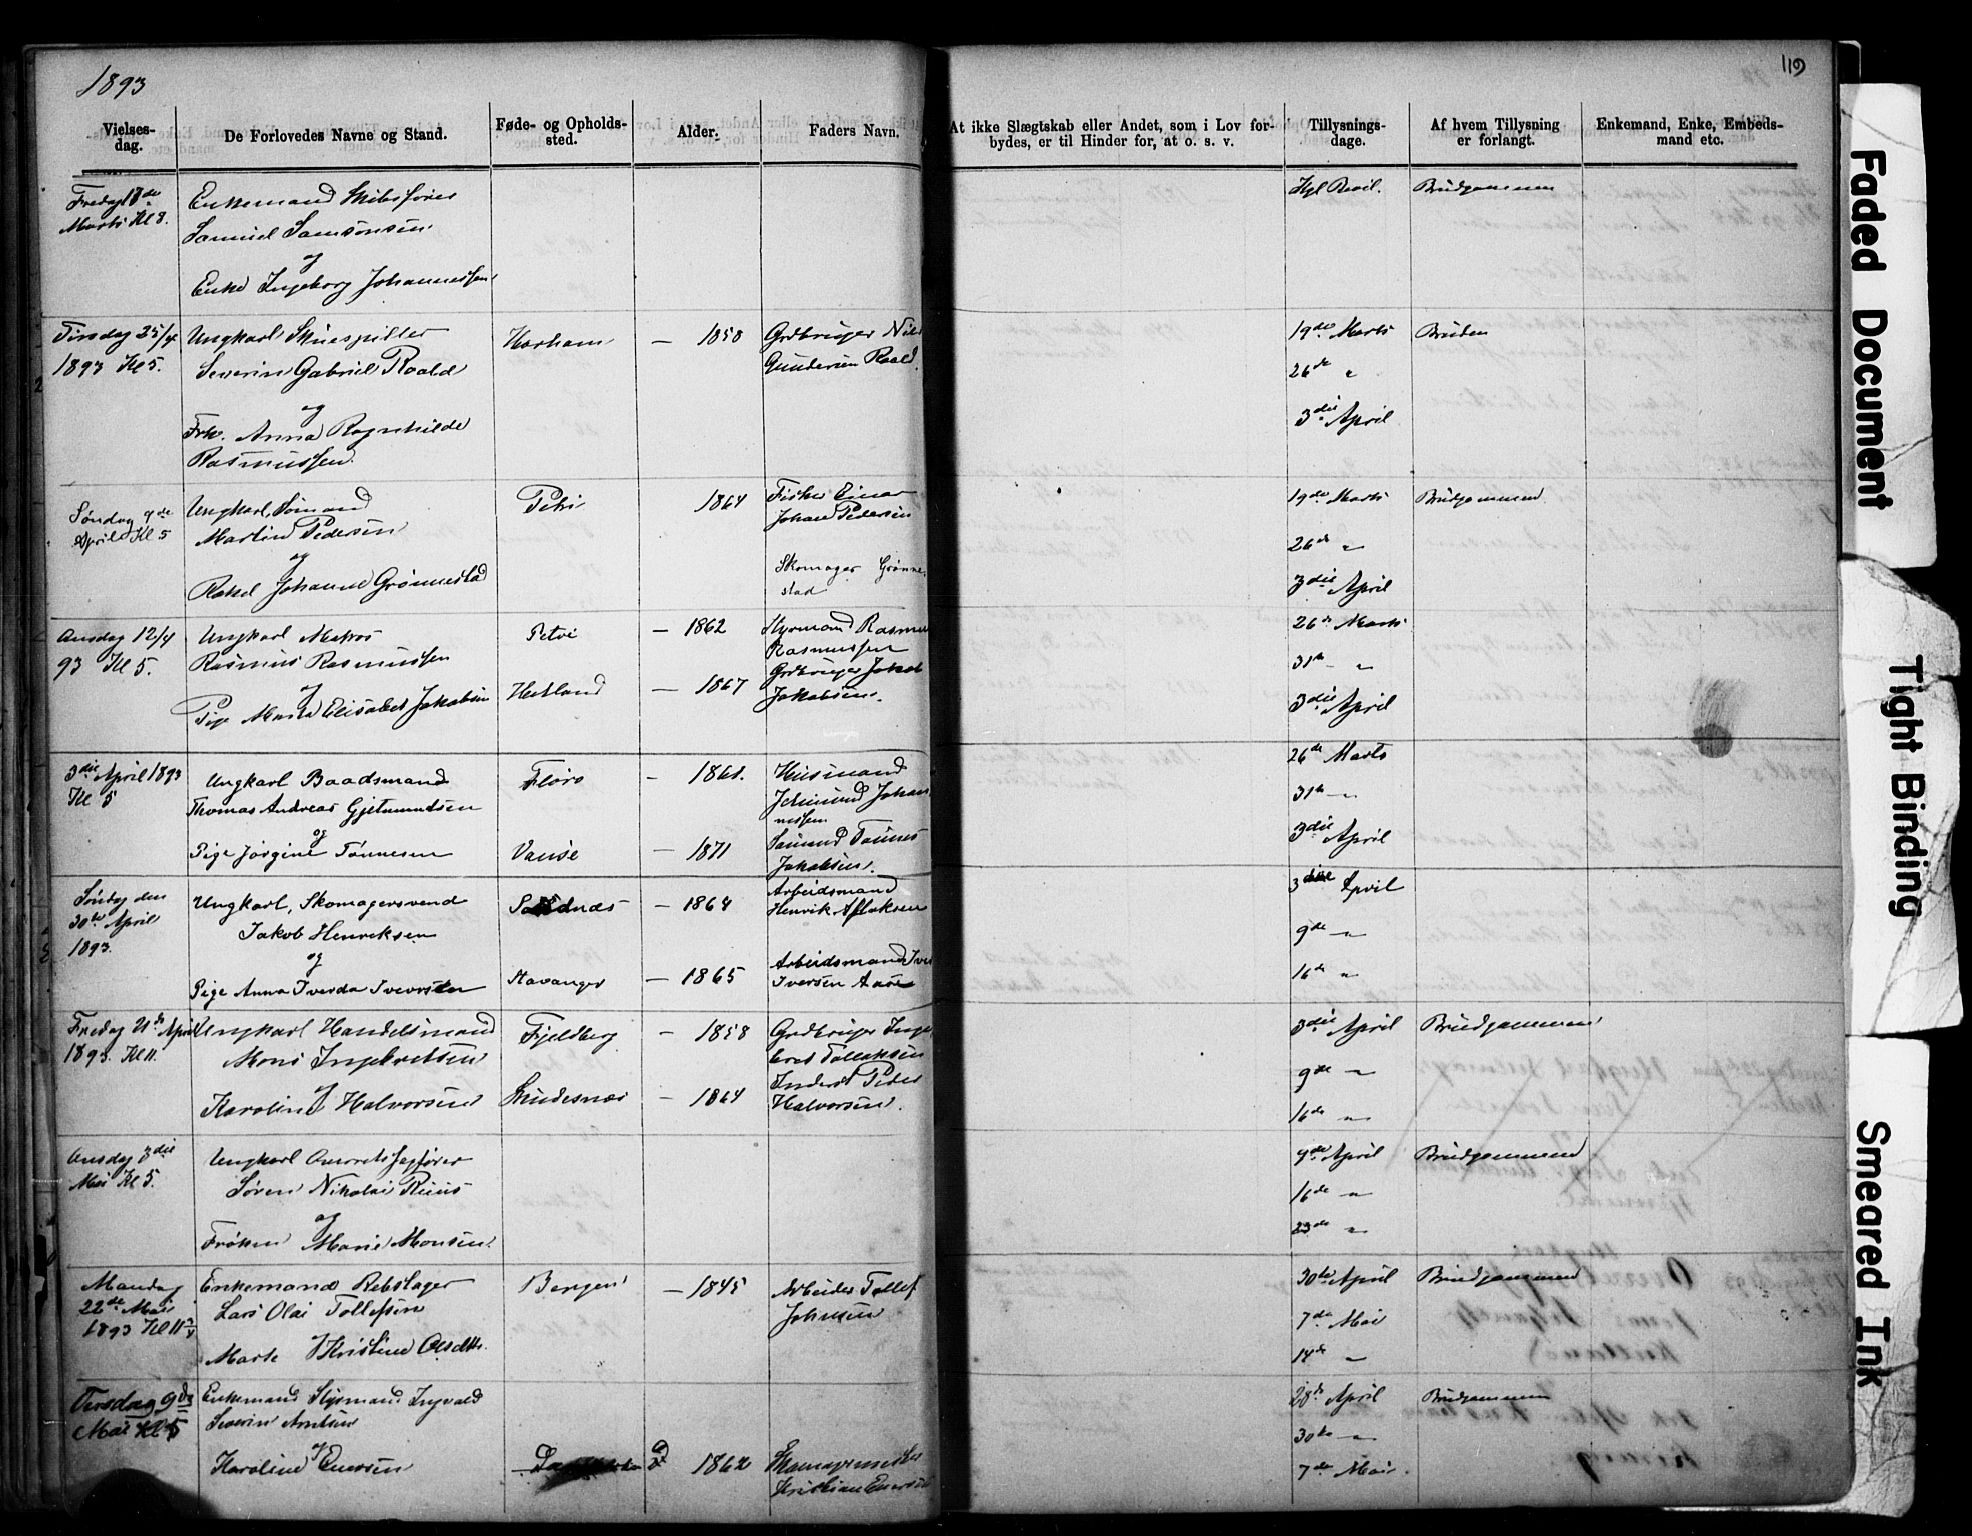 1893
119
Vielses-
dag.
De Forlovedes Navne og Stand.
Føde- og Opholds-
sted.
Alder.
Faders Navn.
At ikke Slægtskab eller Andet, som i Lov for-
bydes, er til Hinder for, at o. s. v.
Tillysnings-
dage.
Af hvem Tillysning
er forlangt.
Enkemand, Enke, Embeds-
mand etc.
Fredag
Marts Kl 8.
Enkemand Skibsfører
Samuel Samsonsen
og
Enke Ingeborg Johannessen
Kgl Bevil.
Brudgommen
Tirsdag 25/4
1893 Kl 5.
Ungkarl Skuespiller
Severin Gabriel Roald
og
Frk. Anna Ragnhilde
Rasmussen
Harham
— 1850
Grdbruger Nils
Gundersen Roald
19de Marts
26de "
3die April
Bruden
Søndag 9de
April Kl 5
Ungkarl, Sømand
Martin Pedersen
og
Rakel Johanne Grønnestad
Petri
1864
Fisker Einar
Johan Pedersen
Skomager Grønne-
stad
19de Marts
26de "
3die April
Brudgommen
Onsdag 12/4
93 Kl 5.
Ungkarl Matros
Rasmus Rasmussen
og
Pige Marta Elisabet Jakobsen
Petri
Hetland
— 1862
— 1867
Styrmand Rasmus
Rasmussen
Grdbruger Jakob
Jakobsen.
26de Marts
31te "
3die April
3die April 1893
Kl 5
Ungkarl Baadsmand
Thomas Andreas Gjetmundsen
og
Pige Jørgine Tønnesen
Florø
Vanse
— 1861.
— 1871
Husmand
Johan-
nessen
Tønnes
Jakobsen.
26de Marts
31te "
3die April
Søndag den
30te April
1893.
Ungkarl, Skomagersvend
Jakob Henriksen
og
Pige Anna Iverda Iversen
Sandnæs
Stavanger
— 1864
— 1865
Arbeidsmand
Henrik Aslaksen
Arbeidsmand Iver
Iversen Aase
3die April
9de "
16de "
Fredag 21de April
1893. Kl 11.
Ungkarl Handelsmand
Mons Ingebretsen
og
Karoline Halvorsen
Fjeldberg
Skudesnæs
— 1858
— 1864
Grdbruger Inge-
bret Tollaksen
Inderst Peder
Halvorsen.
3die April
9de "
16de "
Brudgommen
Onsdag 3die
Mai Kl 5.
Ungkarl Overretssagfører
Søren Nikolai Ruus
og
Frøken Marie Monsen.
9de April
16de "
23de "
Brudgommen
Mandag
22de Mai
1893 Kl 11
Enkemand Rebslager
Lars Olai Tollefsen
og
Marte Kristine Olsdtr.
Bergen
— 1845
Arbeider Tollef
Johnsen
30te April
7de Mai
14de "
Brudgommen
Tirsdag 9de
Mai Kl 5
Enkemand Styrmand Ingvald
Severin Arntsen
og
Karoline Enersen
1862
Skomagermester
Kristian Enersen
28de April
30te "
7de Mai.
Brudgommen
Faded Document
Tight Binding
Smeared Ink